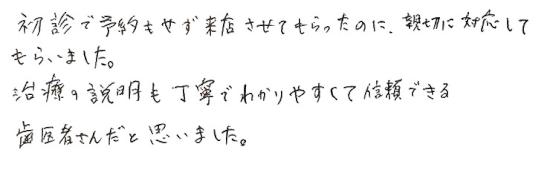 初診で予約もせず来店させてもらったのに、親切に対応して
もらいました。
治療の説明も丁寧でわかりやすくて信頼できる
歯医者さんだと思いました。